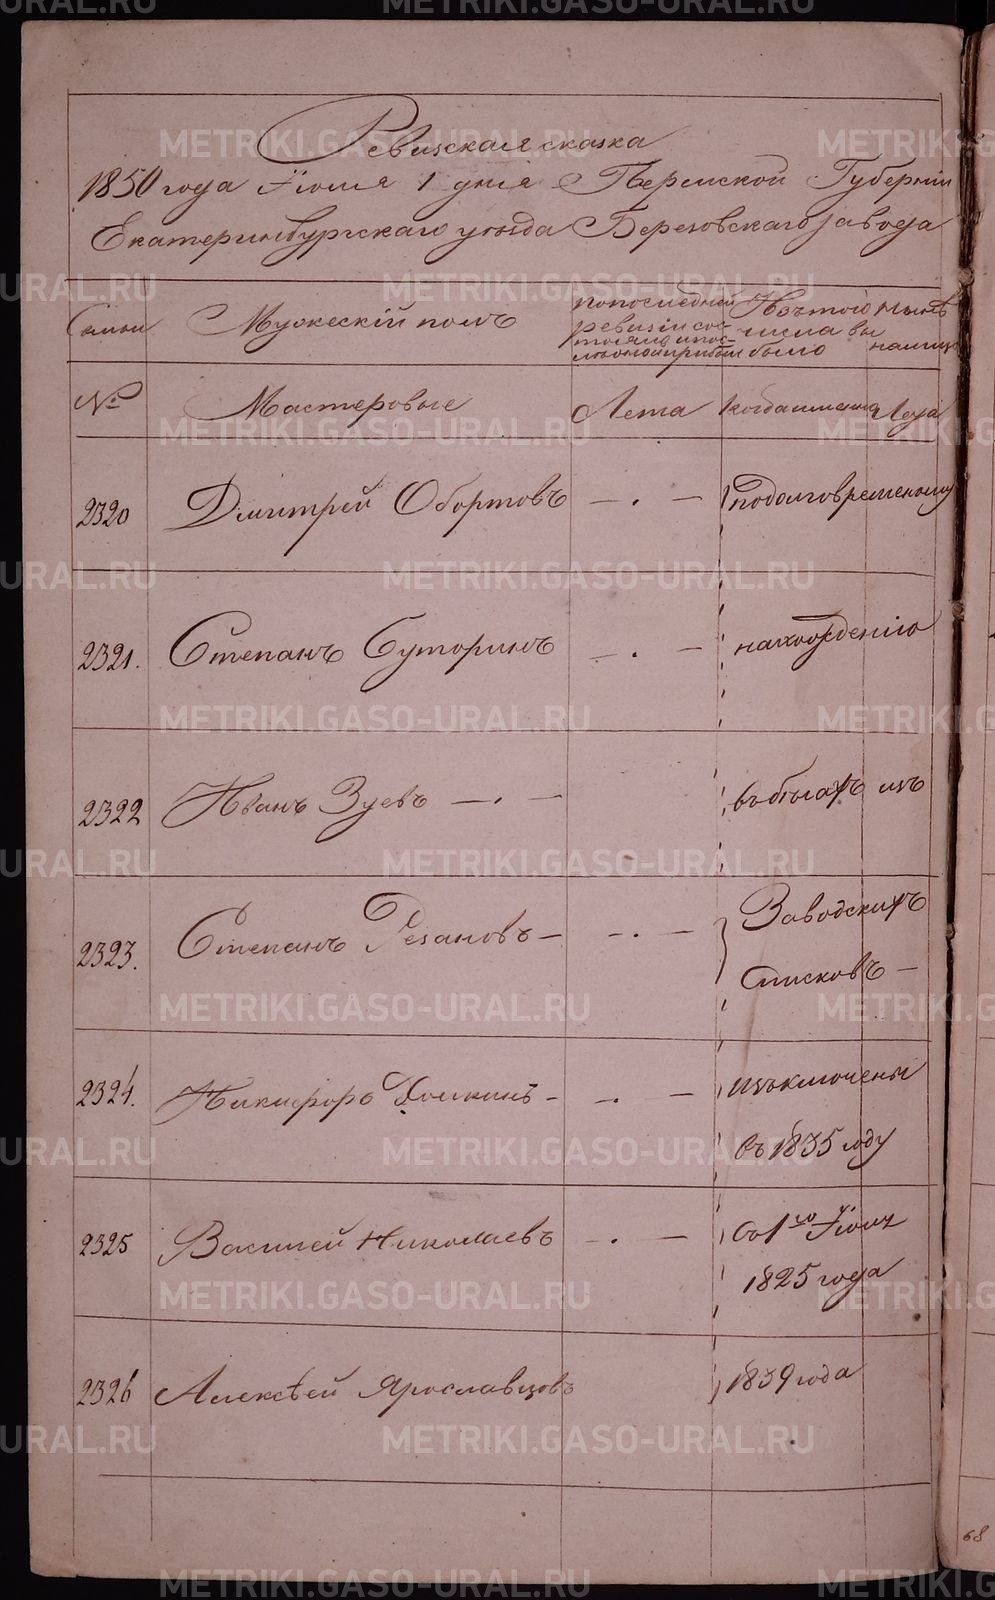 Ревизская сказка
1850 года Іюля 1 дня Пермской Губерніи
Екатеринбургскаго уѣзда Березовскаго завода
Семьи
Мужескій полъ
по последней ревизіи состояло и после оной прибыло
Изъ того числа выбыло
нынѣ на лицо
№
Мастеровые
Лета
когда именно
Лета
2320 Дмитрей Обортовъ — . — по долговременому
2321. Степанъ Буторинъ — . — нахождению
2322 Иванъ Зуевъ — . — въ бѣгахъ изъ
2323. Степанъ Резановъ — — . — Заводскихъ
списковъ —
2324. Никифоръ — — . — изъключены
въ 1835 году
2325 Василей Николаевъ — . — съ 1го Іюля
1825 года
2326 Алексѣй Ярославцовъ 1839 года
68
METRIKI.GASO-URAL.RU